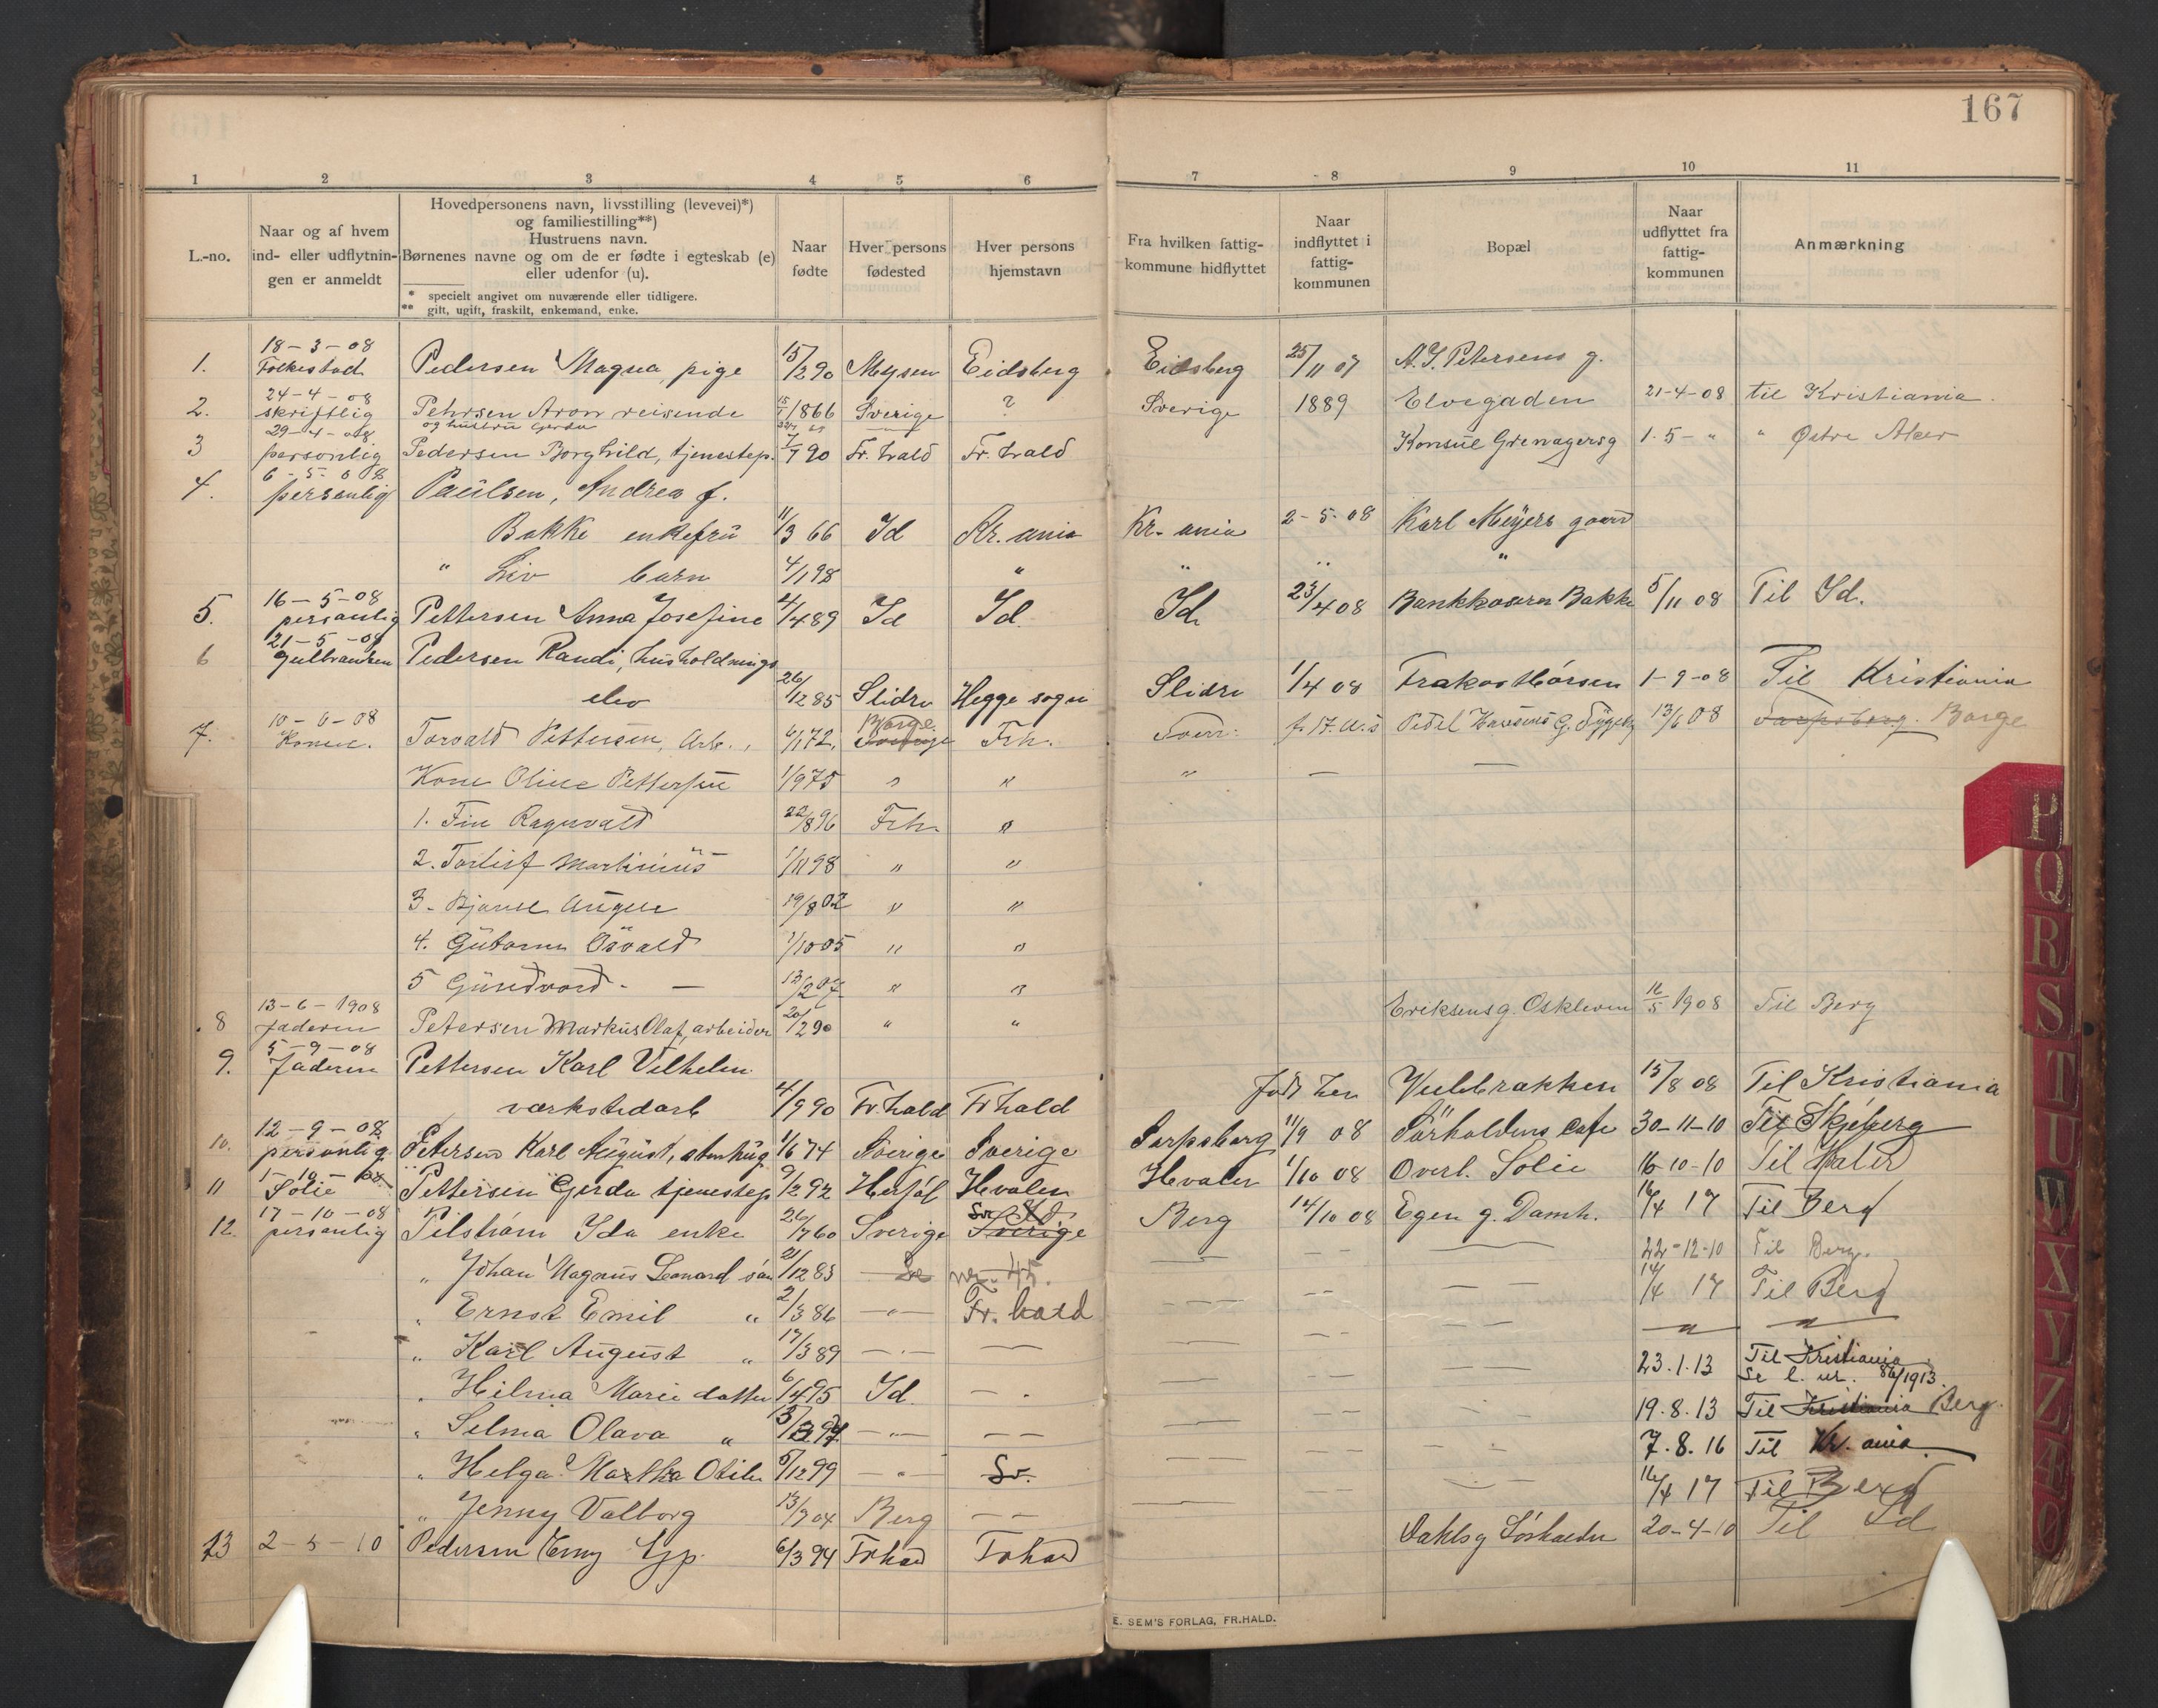 167
1 2 3 4 5 6 7 8 9 10 11
L.-no.
Naar og af hvem ind- eller udflytningen er anmeldt
Hovedpersonens navn, livsstilling (levevei)*) og familiestilling**)
Hustruens navn.
Børnenes navne og om de er fødte i egteskab (e) eller udenfor (u).
* specielt angivet om nuværende eller tidligere.
** gift, ugift, fraskilt, enkemand, enke.
Naar fødte
Hver persons fødested
Hver persons hjemstavn
Fra hvilken fattigkommune hidflyttet
Naar indflyttet i fattigkommunen
Bopæl
Naar udflyttet fra fattigkommunen
Anmærkning
1. 18-3-08 Folkestad Pedersen Magna, pige 15/2 90 Mysen Eidsberg Eidsberg 25/11 07 A. J. Petersens g.
2. 24-4-08 skriftlig Petersen Aron reisende 1866 Sverige ? Sverige 1889 Elvegaden 21-4-08 til Kristiania.
og hustru Gerda
3 29-4-08 personlig Pedersen Borghild, tjenestep. 90 Fr.hald Fr.hald Konsul Grenagersg 1.5-" " Østre Aker
4. 6-5-08 personlig Paulsen, Andrea f.
Bakke enkefru 11/3 66 Id Kr.ania Kr.ania 2-5-08 Karl Meyers gaard
" Liv barn 4/1 98 " " " "
5. 16-5-08 personlig Pettersen Anna Josefine 4/4 89 Id Id. Id. 23/4 08 Bankkaserer Bakke 5/11 08 Til Id.
6 21-5-08 Gulbransen Pedersen Randi, husholdnings
elev 26/12 85 Slidre Hegge sogn Slidre 1/4 08 1-9-08 Til Kristiania
7. 10-6-08 Konen. Torvald Pettersen, Arb., 6/1 72. Sverige Borge Frh. Sver. Pedel Hansens G. 13/6 08 Sarpsborg. Borge
Kone Oline Pettersen 1/9 75 " " " — —
1. Fin Ragnvald 22/8 96 Frh. "
2. Torleif Martinius 1/11 98 " "
3. Bjarne August 19/8 02 " "
4. Gutorm Osvald 1/10 05 " "
5 Gundvord. — 13/2 07 " "
8 13-6-1908 Faderen Petersen Markus Olaf, arbeider 20/2 90 " " Eriksens g. Oskleven 16/5 1908 Til Berg
9. 5-9-08 Faderen Pettersen Karl Vilhelm
værkstedarb 4/9 90 Fr.hald Frhald født her 15/8 08 Til Kristiania
10. 12-9-08 personlig Petersen Karl August, stenhug. 1/6 74 Sverige Sverige Sarpsborg 11/9 08 Sörhaldens Cafe 30-11-10 Til Skjeberg
11 1-10-08 Solie Pettersen Gerda tjenestep 9/2 92 Hvaler Hvaler 1/10 08 Overl. Solie 16-10-10 Til Hvaler
12. 17-10-08 personlig Pilström Ida enke 26/7 60 Sverige Sverige Sv. Berg 14/10 08 Egen g. Damh. 16/4 17 Til Berg
" Johan Magnus Leonard sön 21/12 83 Se nr. 45. — — — 22-12-10 Til Berg.
" Ernst Emil " 2/3 86 —"— Fr.hald — — — 14/4 17 Til Berg
" Karl August " 17/3 89 —"— — — — — " "
" Hilma Marie datter 6/4 95 Id — — — — 23.1.13 Til Kristiania
Se l. nr. 86/1913.
" Selma Olava " —"— — — — — — 19.8.13 Til Kristiania Berg.
" Helga Martha Otilie 5/12 99 —"— Sv. — — — 7.8.16 Til Kr.ania.
" Jenny Valborg 13/7 04 Berg — — — — — 16/4 17 Til Berg
13 2-5-10 Pedersen Emy tjp. 6/3 94 Frhald Frhald Dahls g Sörhalden 20-4-10 Til Id
E. SEM'S FORLAG, FR.HALD.
P
Q
R
S
T
U
W
X
Y
Z
Æ
Ø